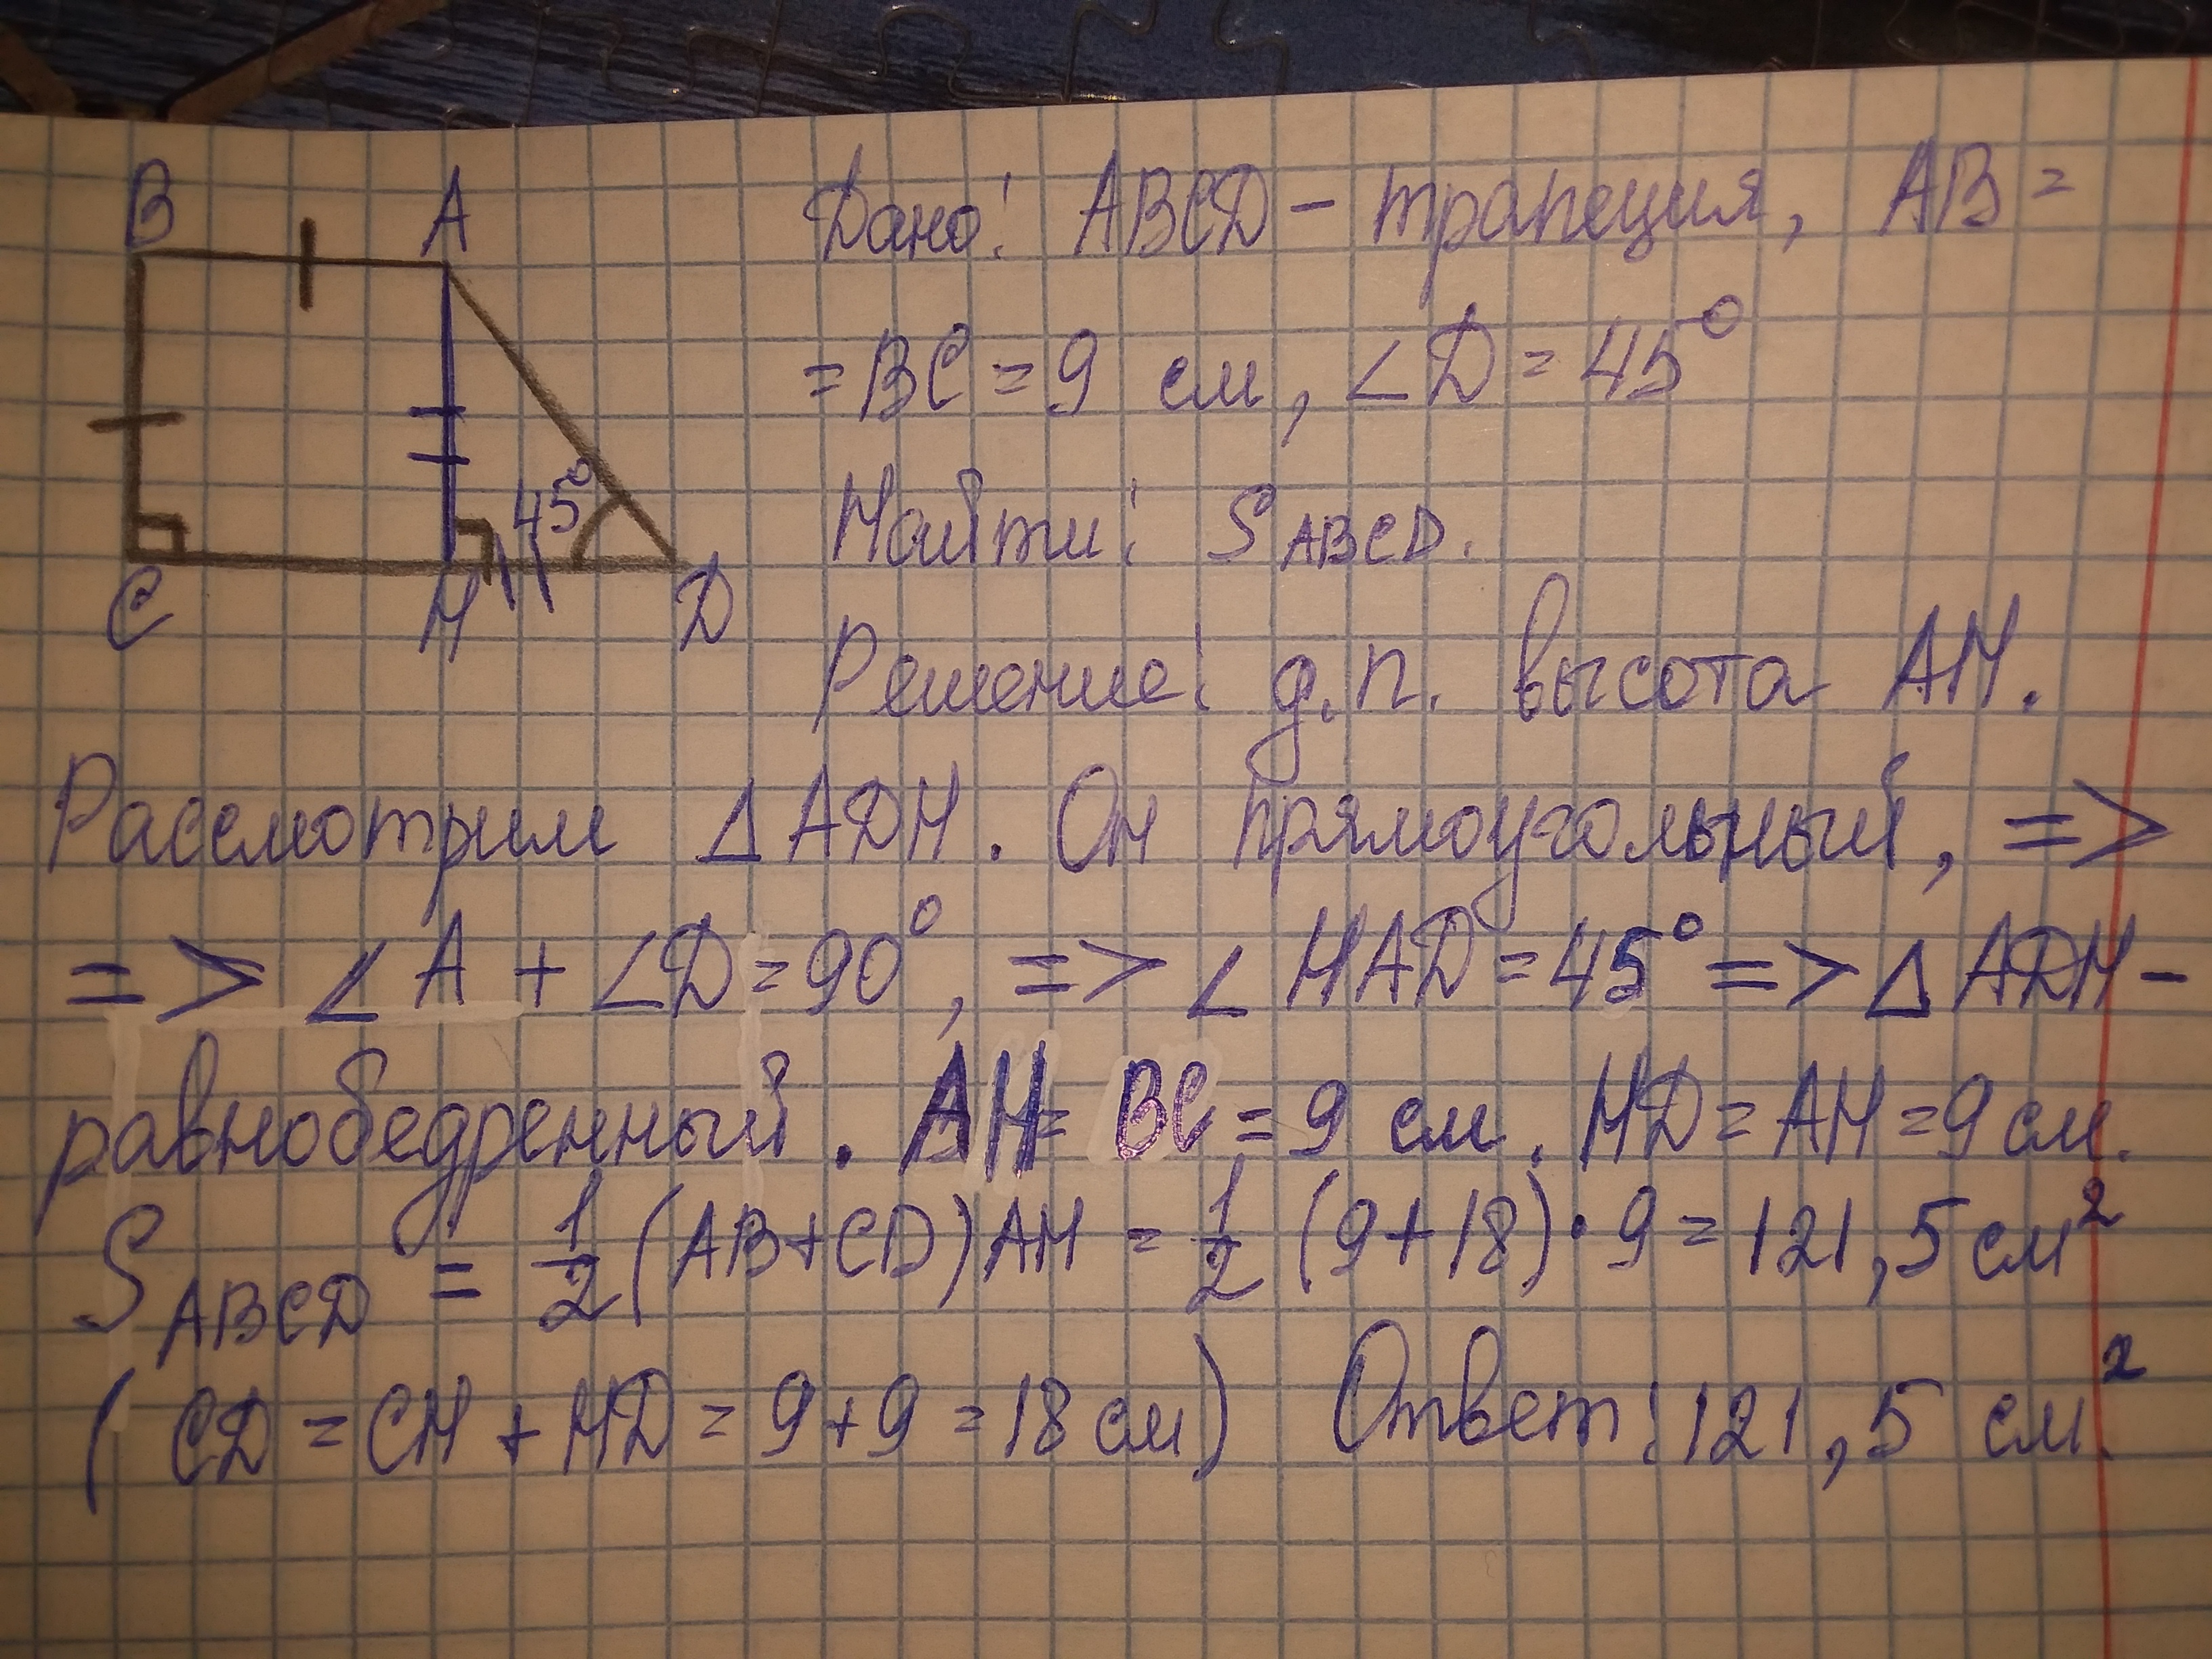 B A
45°
C H D
Дано: ABCD - трапеция, AB =
= BC = 9 см, ∠D = 45°
Найти: S ABCD.
Решение: д.п. высота AH.
Рассмотрим △ADH. Он прямоугольный, =>
=> ∠A + ∠D = 90°, => ∠HAD = 45° => △ADH -
равнобедренный. AH = BC = 9 см. HD = AH = 9 см.
S ABCD = 1/2 (AB + CD) AH = 1/2 (9 + 18) · 9 = 121,5 см²
(CD = CH + HD = 9 + 9 = 18 см) Ответ: 121,5 см².